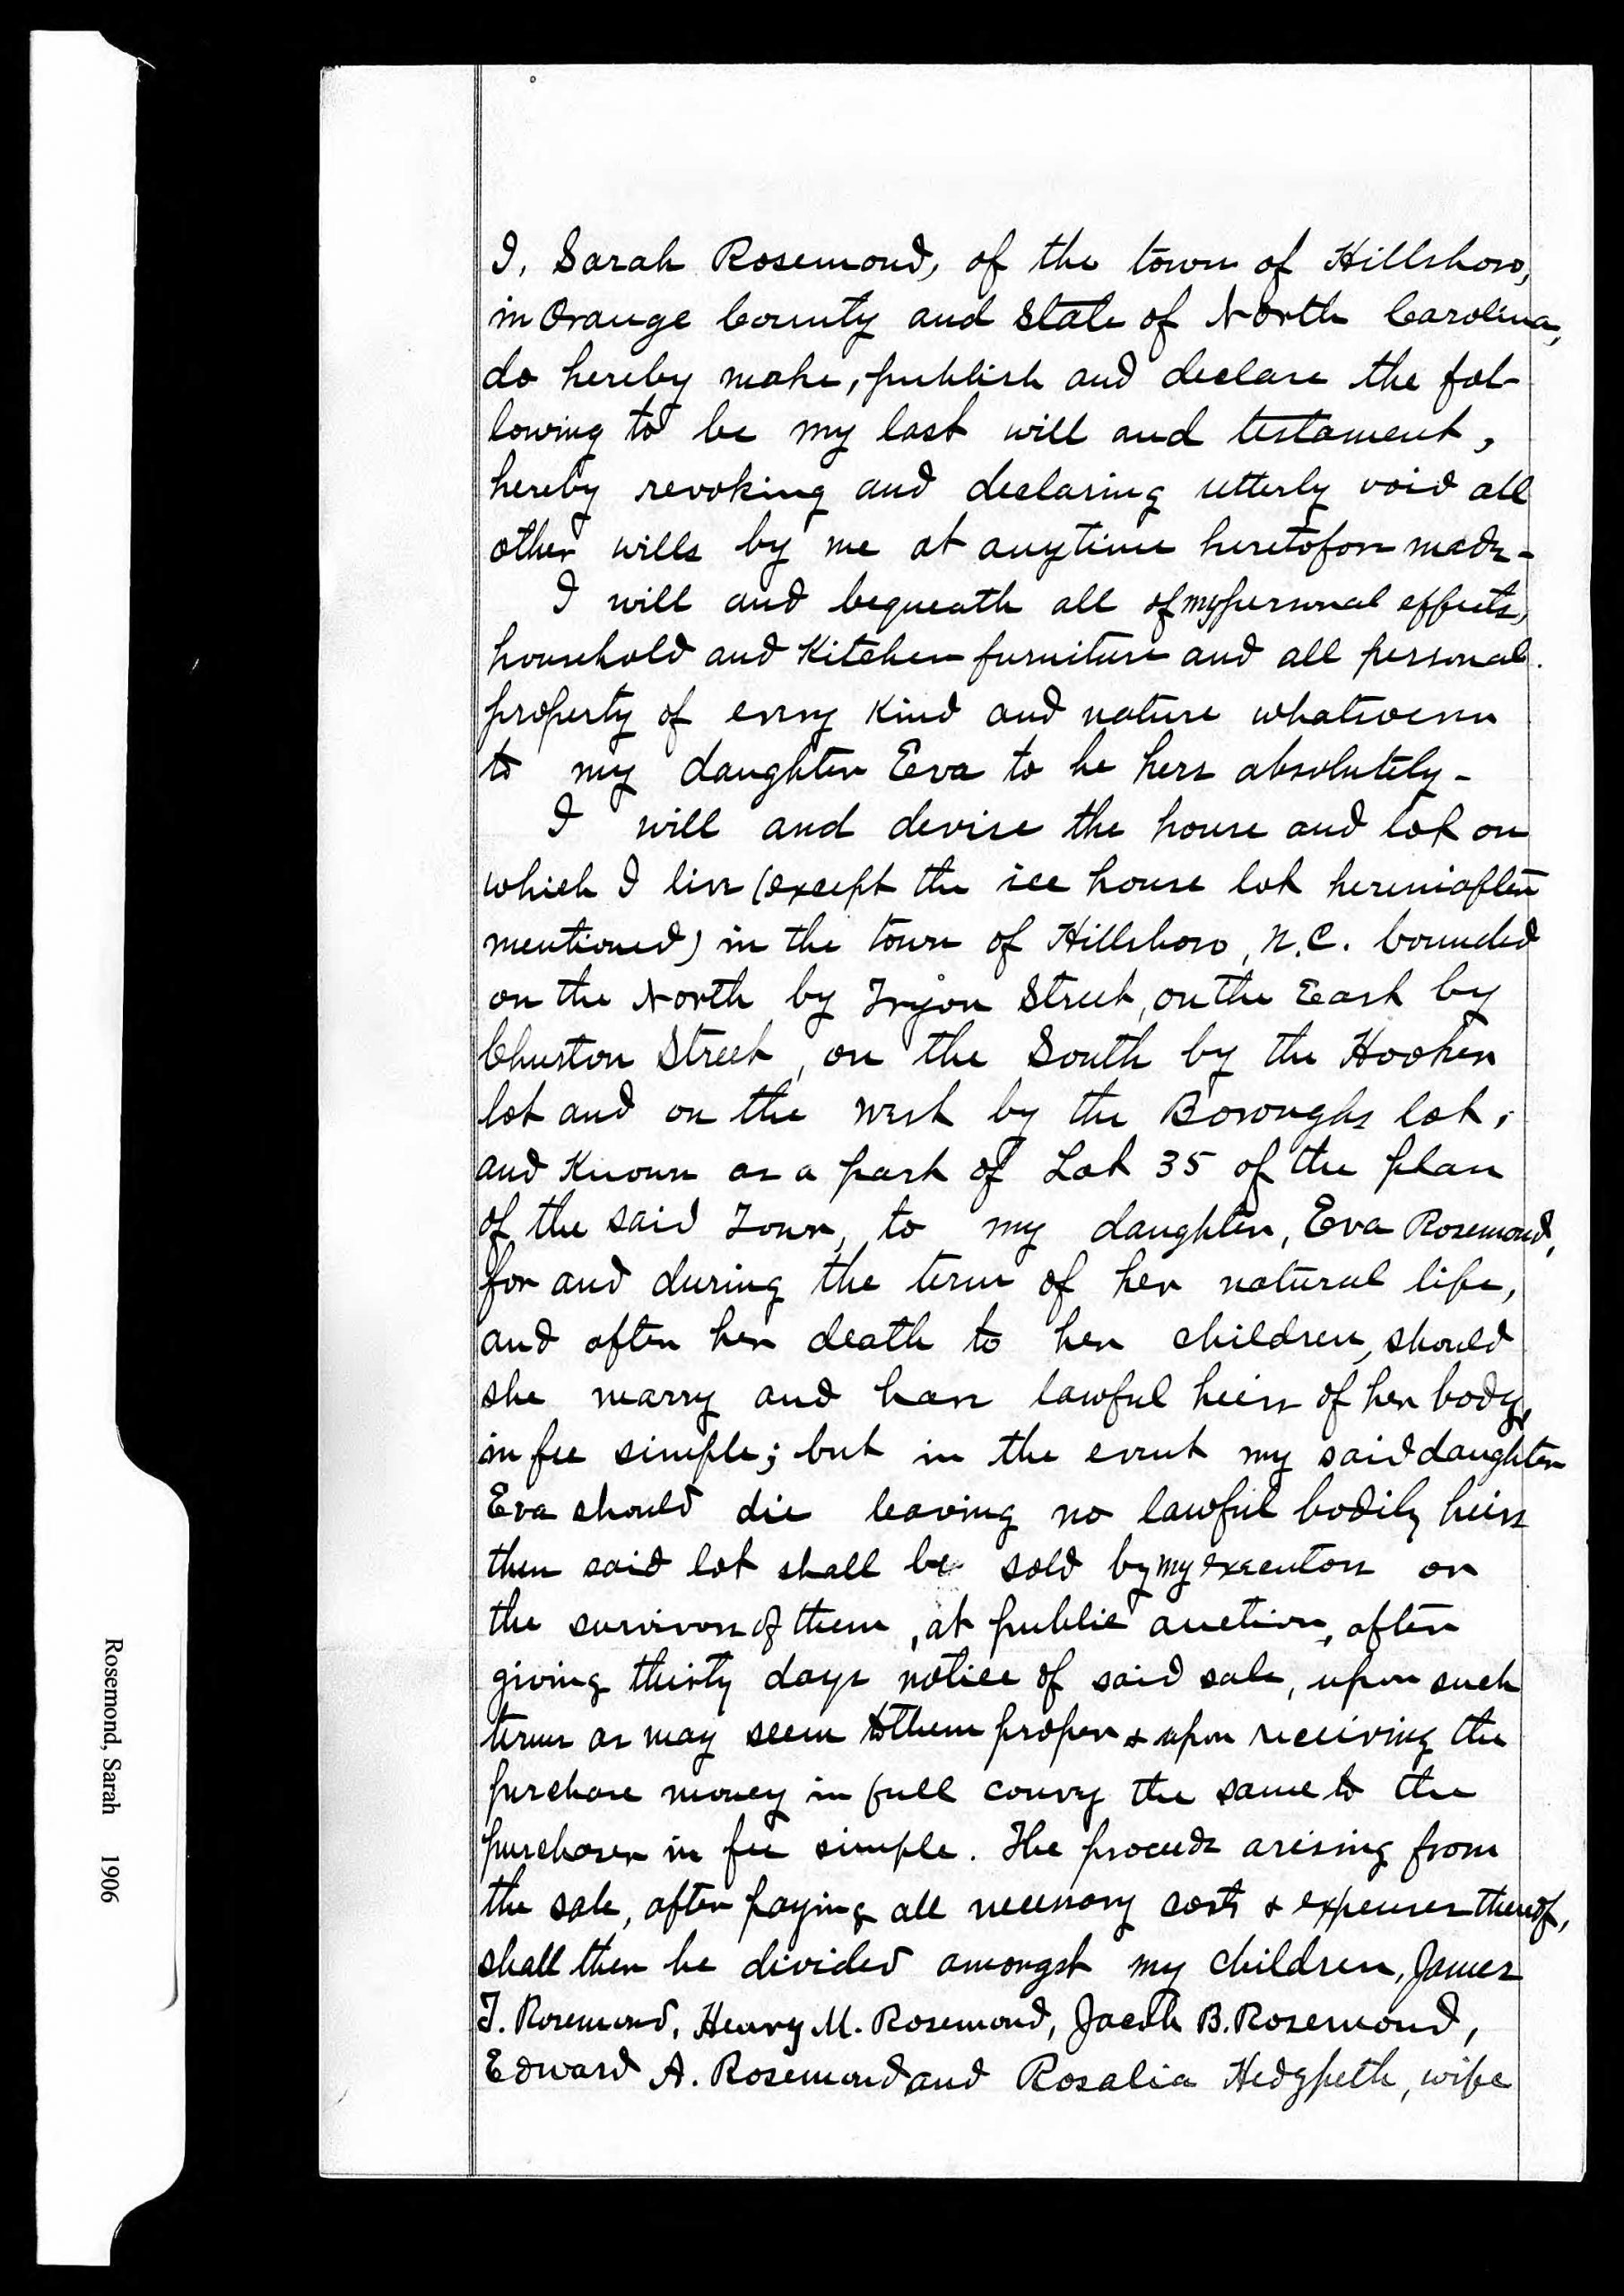 I, Sarah Rosemond, of the town of Hillsboro,
in Orange County and State of North Carolina,
do hereby make, publish and declare the fol-
lowing to be my last will and testament,
hereby revoking and declaring utterly void all
other wills by me at anytime heretofore made-
I will and bequeath all of my personal effects,
household and Kitchen furniture and all personal
property of every kind and nature whatsoever
to my daughter Eva to be hers absolutely-
I will and devise the house and lot on
which I live (except the ice house lot hereinafter
mentioned) in the town of Hillsboro, N.C. bounded
on the North by Tryon Street, on the East by
Churton Street, on the South by the Hooker
lot and on the west by the Boroughs lot,
and Known as a part of Lot 35 of the plan
of the said Town, to my daughter, Eva Rosemond,
for and during the term of her natural life,
and after her death to her children, should
she marry and have lawful heirs of her body,
in fee simple; but in the event my said daughter
Eva should die leaving no lawful bodily heirs
then said lot shall be sold by my executors or
the survivors of them, at public auction, after
giving thirty days notice of said sale, upon such
terms as may seem to them proper & upon receiving the
purchase money in full convey the same to the
purchaser in fee simple. The proceeds arising from
the sale, after paying all necessary costs & expenses thereof,
shall then be divided amongst my children, James
T. Rosemond, Henry M. Rosemond, Jacob B. Rosemond,
Edward A. Rosemond and Rosalia Hedgpeth, wife
Rosemond, Sarah 1906